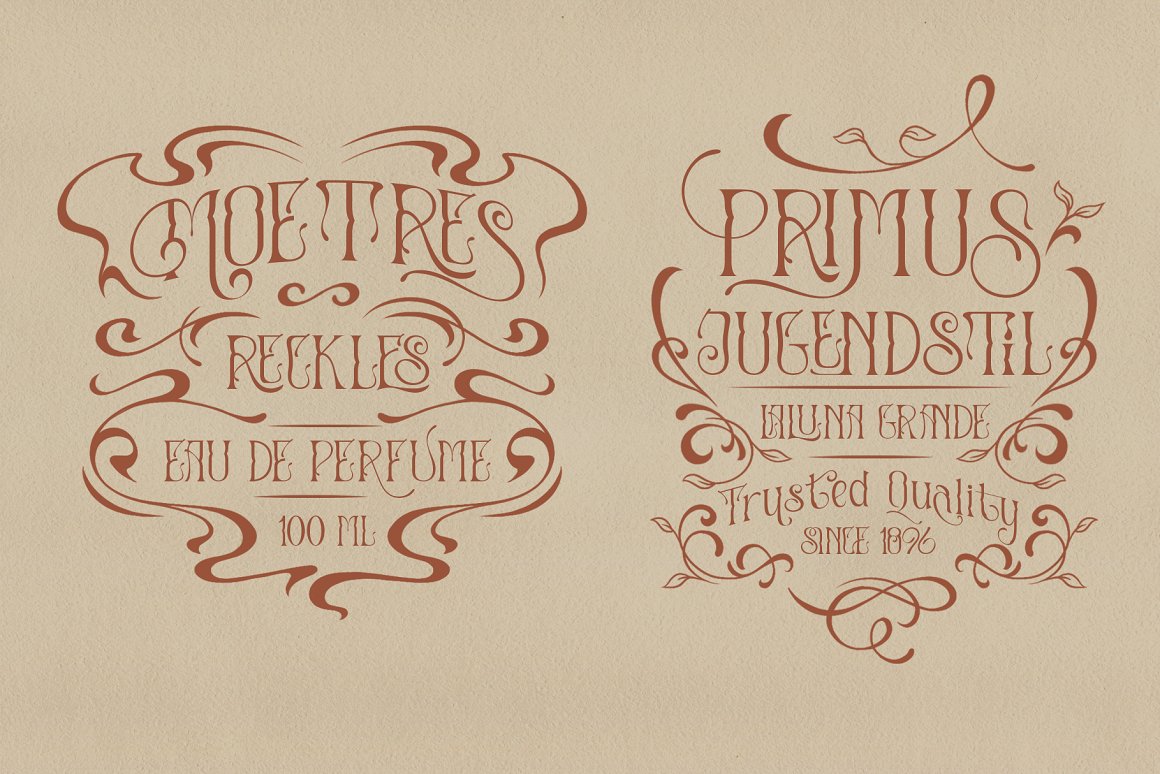 MOETRES
RECKLES
EAU DE PERFUME
100 ML
PRIMUS
JUGENDSTiL
LALUNA GRANDE
Trusted Quality
SINCE 1896